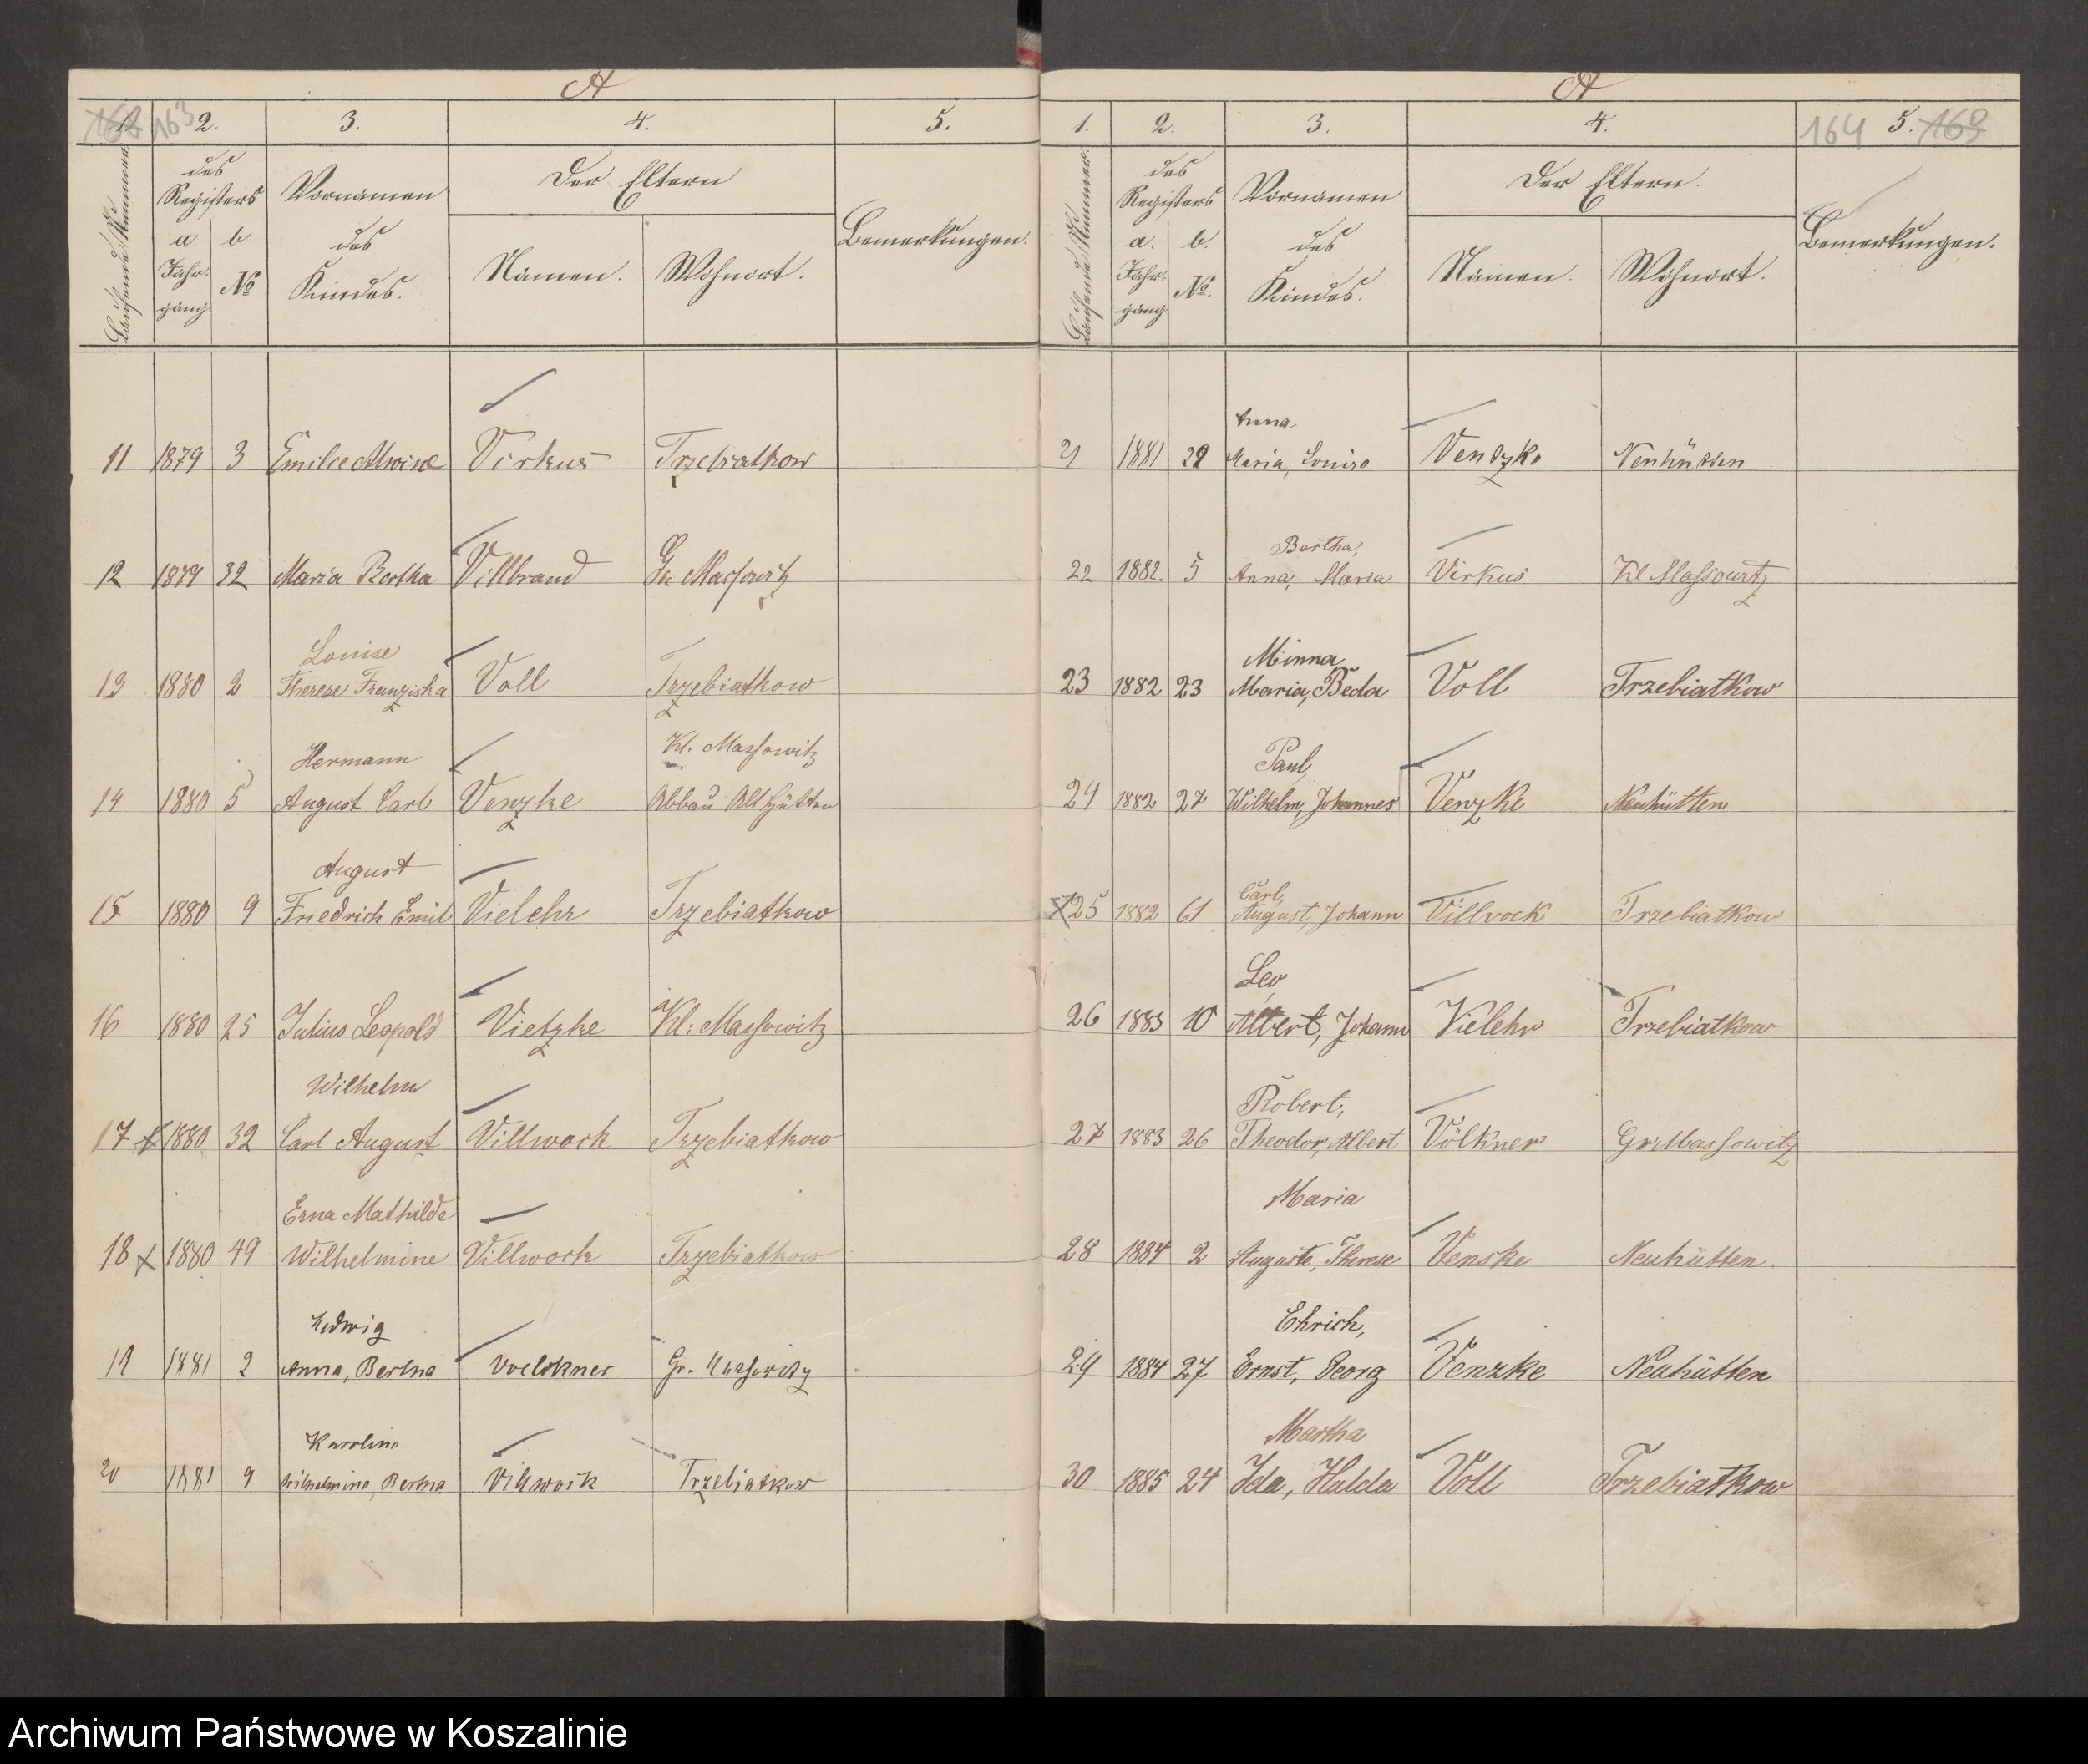 A
163
1. 2. 3. 4. 5.
Laufende Nummer.
des Registers
Vornamen des Kindes.
Der Eltern
Bemerkungen.
a. Jahrgang
b No
Namen. Wohnort.
11 1879 3 Emilie Alwine Virkus Trzebiatkow
12 1879 32 Maria Bertha Villbrand Gr Massowitz
Louise
13 1880 2 Therese Franziska Voll Trzebiatkow
Hermann Kl. Massowitz
14 1880 5 August Carl Venzke Abbau Alt Hütten
August
15 1880 9 Friedrich Emil Vielehr Trzebiatkow
16 1880 25 Julius Leopold Vietzke Kl: Massowitz
Wilhelm
17 x 1880 32 Carl August Villwock Trzebiatkow
Erna Mathilde
18 x 1880 49 Wilhelmine Villwock Trzebiatkow
Hedwig
19 1881 2 Anna, Bertha Voelkner Gr. Massowitz
Karoline
20 1881 9 Wilhelmine, Bertha Villwock Trzebiatkow
A
1. 2. 3. 4. 164 5.
Laufende Nummer.
des Registers
Vornamen des Kindes.
Der Eltern.
Bemerkungen.
a. Jahrgang
b. No.
Namen. Wohnort.
Anna
21 1881 29 Maria, Louise Venszke Neuhütten
Bertha,
22 1882. 5 Anna, Maria Virkus Kl Massowitz
Minna,
23 1882 23 Maria, Beda Voll Trzebiatkow
Paul,
24 1882 27 Wilhelm, Johannes Venzke Neuhütten
Carl,
x25 1882 61 August, Johann Villvock Trzebiatkow
Leo,
26 1883 10 Albert, Johann Vielehr Trzebiatkow
Robert,
27 1883 26 Theodor, Albert Völkner Gr Massowitz
Maria
28 1884 2 Auguste, Therese Venske Neuhütten.
Ehrich,
29 1884 27 Ernst, Georg Venzke Neuhütten
Martha
30 1885 24 Ida, Hulda Voll Trzebiatkow
Archiwum Państwowe w Koszalinie